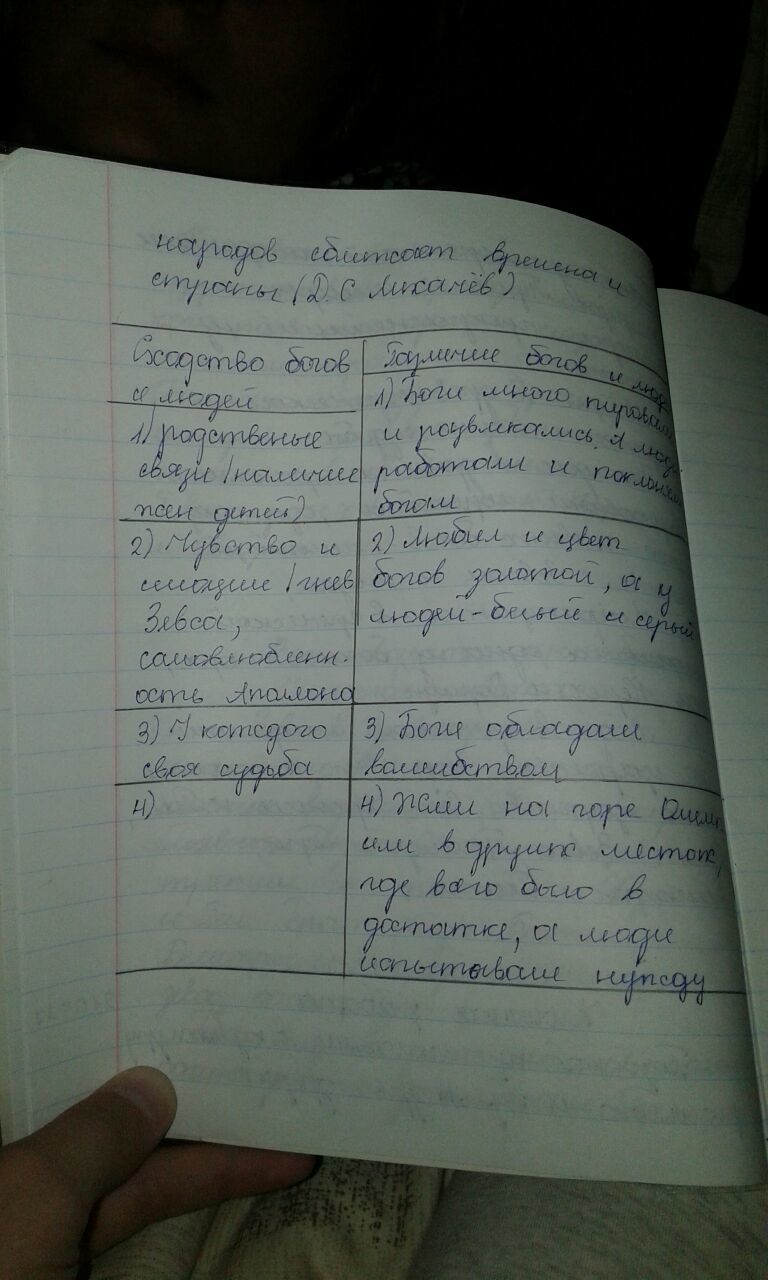 народов сближает времена и
страны (Д. С Лихачёв)
Сходство богов
и людей
1) родственые
связи (наличие
жен детей)
2) Чувство и
эмоции (гнев
Зевса,
самовлюбленн-
ость Аполона
3) У каждого
своя судьба
4)
Различие богов и люд
1) Боги много пировали
и развлекались. А люди
работали и поклоня
богам
2) Любил и цвет
богов золотой, а у
людей - белый и серый
3) Боги обладали
волшебством
4) Жили на горе Олимп
или в других местах,
где всего было в
достатке, а люди
испытывали нужду